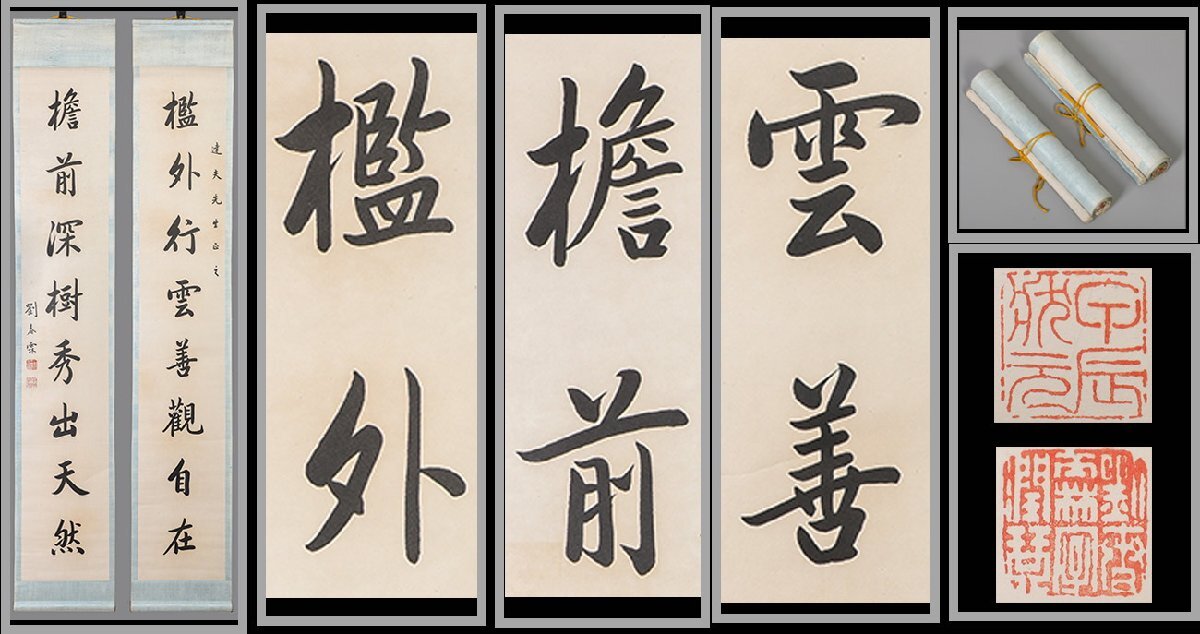 檻外行雲善觀自在
達夫先生正之
檐前深樹秀出天然
劉春霖
檻外
檐前
雲善
甲辰狀元